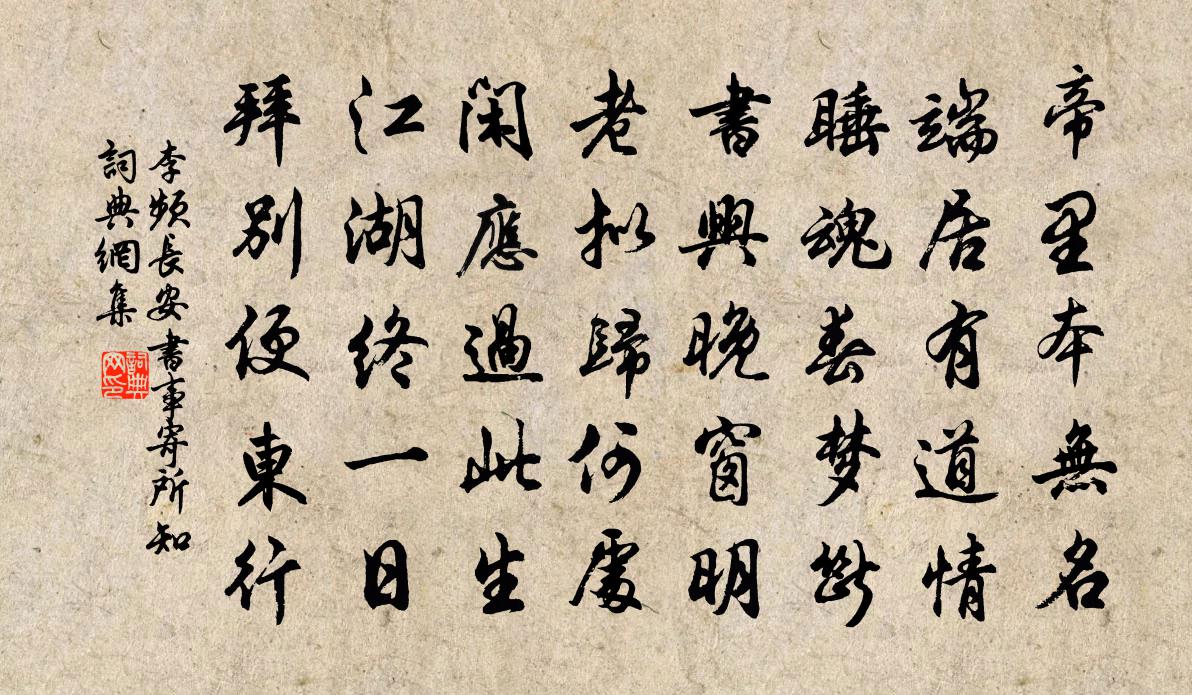 帝里本無名
端居有道情
睡魂春梦斷
書興晚窗明
老拟歸何處
閑應過此生
江湖終一日
拜別便東行
李频長安書事寄所知
詞典網集
詞典网印